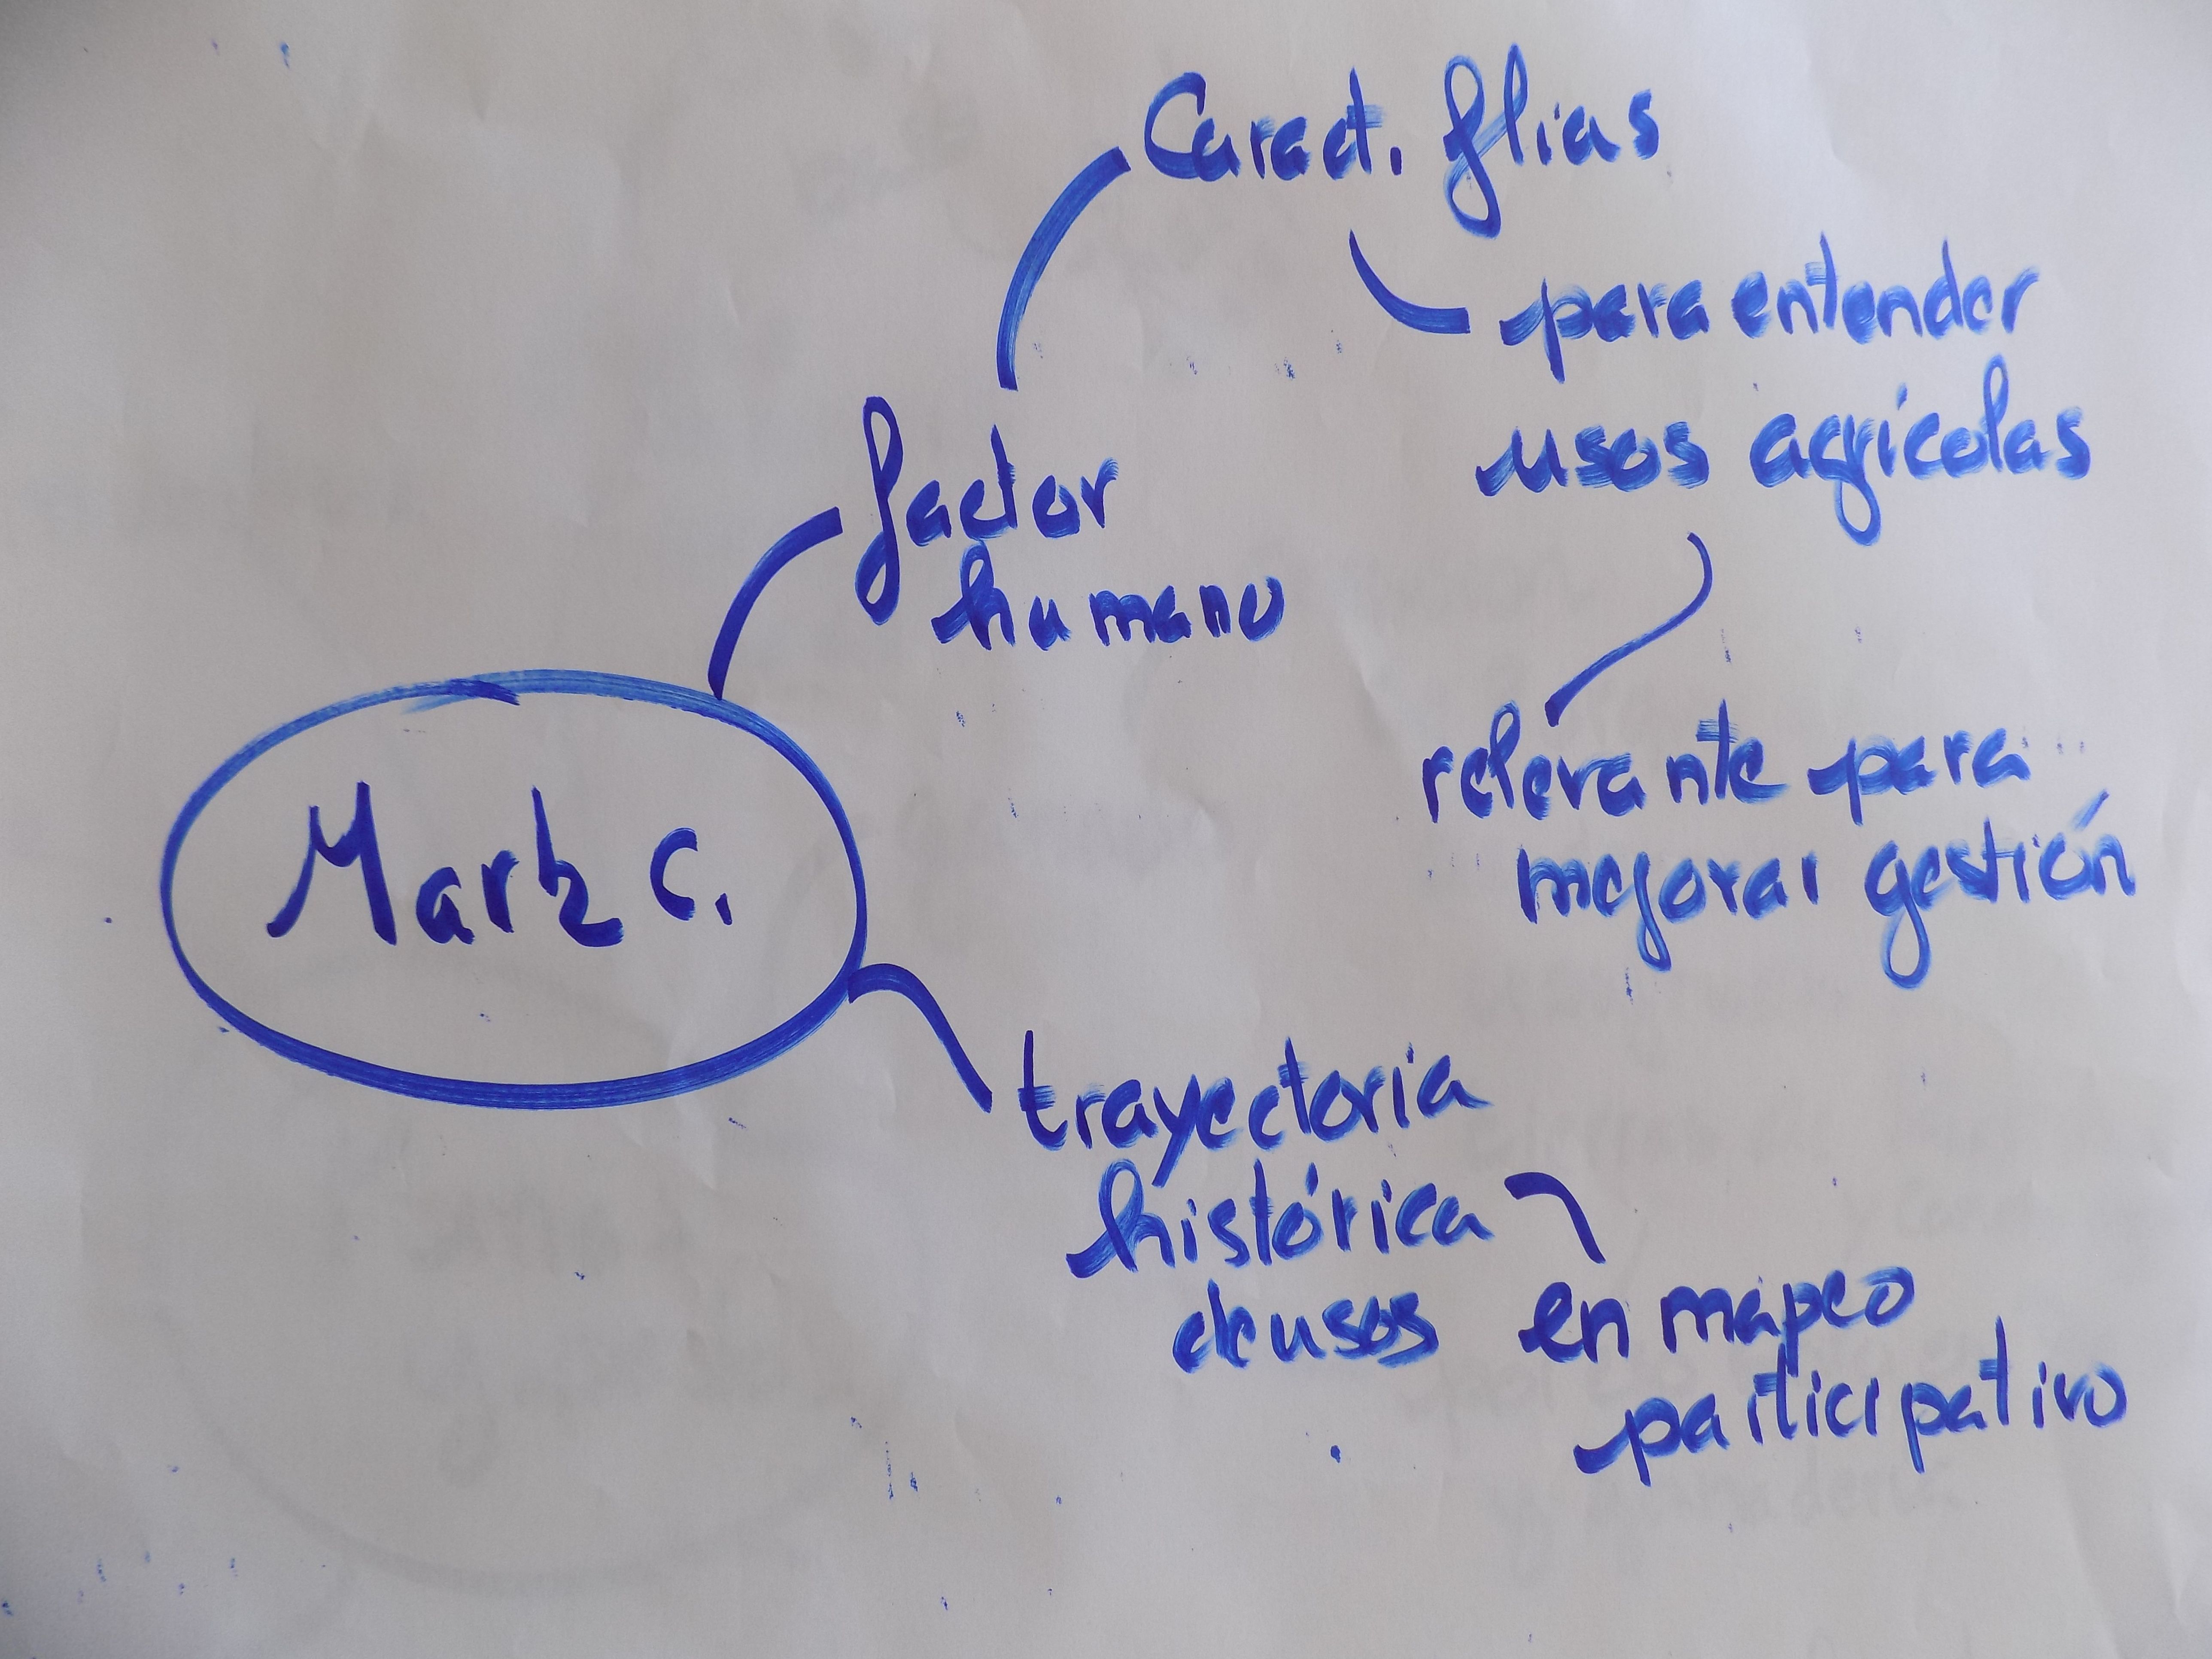 Caract. flias
para entender
usos agrícolas
factor
humano
relevante para
mejorar gestión
c.
trayectoria
histórica
de usos
en mapeo
participativo